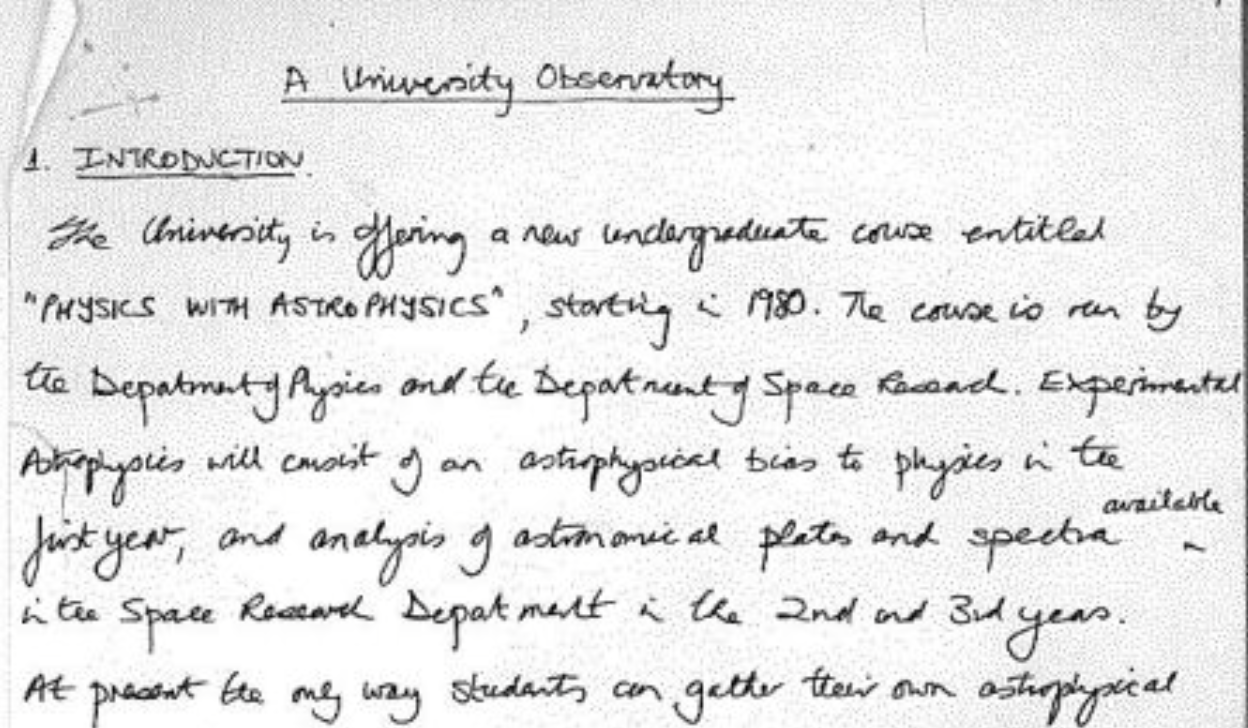 A University Observatory
1. INTRODUCTION.
The University is offering a new undergraduate course entitled
"PHYSICS WITH ASTROPHYSICS", starting in 1980. The course is run by
the Department of Physics and the Department of Space Research. Experimental
Astrophysics will consist of an astrophysical bias to physics in the
available
first year, and analysis of astronomical plates and spectra ^
in the Space Research Department in the 2nd and 3rd years.
At present the only way students can gather their own astrophysical